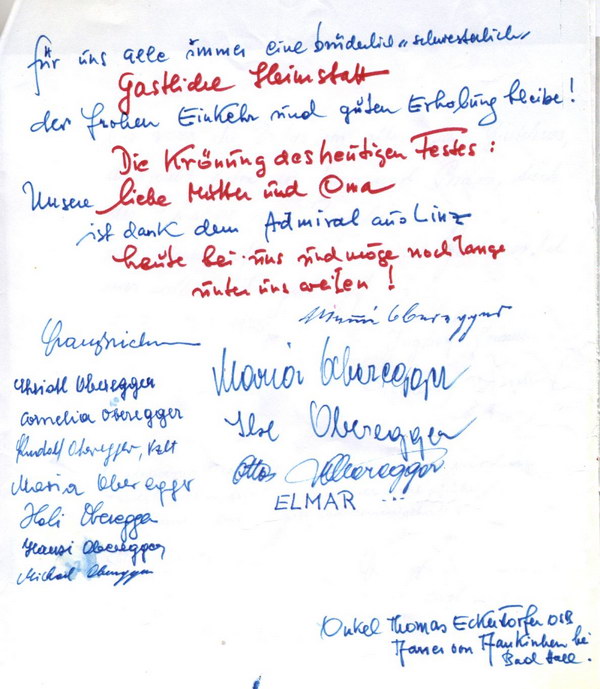 für uns alle immer eine brüderlich-schwesterlich
Gastliche Heimstatt
der frohen Einkehr und guten Erholung bleibe!
Die Krönung des heutigen Festes:
Unsere liebe Mutter und Oma
ist dank dem Admiral aus Linz
heute bei uns und möge noch lange
unter uns weilen!
Oberegger
Christl Oberegger
Cornelia Oberegger
Rudolf Oberegger,
Maria Oberegger
Heli Oberegger
Hansi Oberegger
Michael Oberegger
Maria Oberegger
Ilse Oberegger
Otto Oberegger
ELMAR ...
Onkel Thomas Eckerstorfer OSB
Pfarrer von Pfarrkirchen bei
Bad Hall.